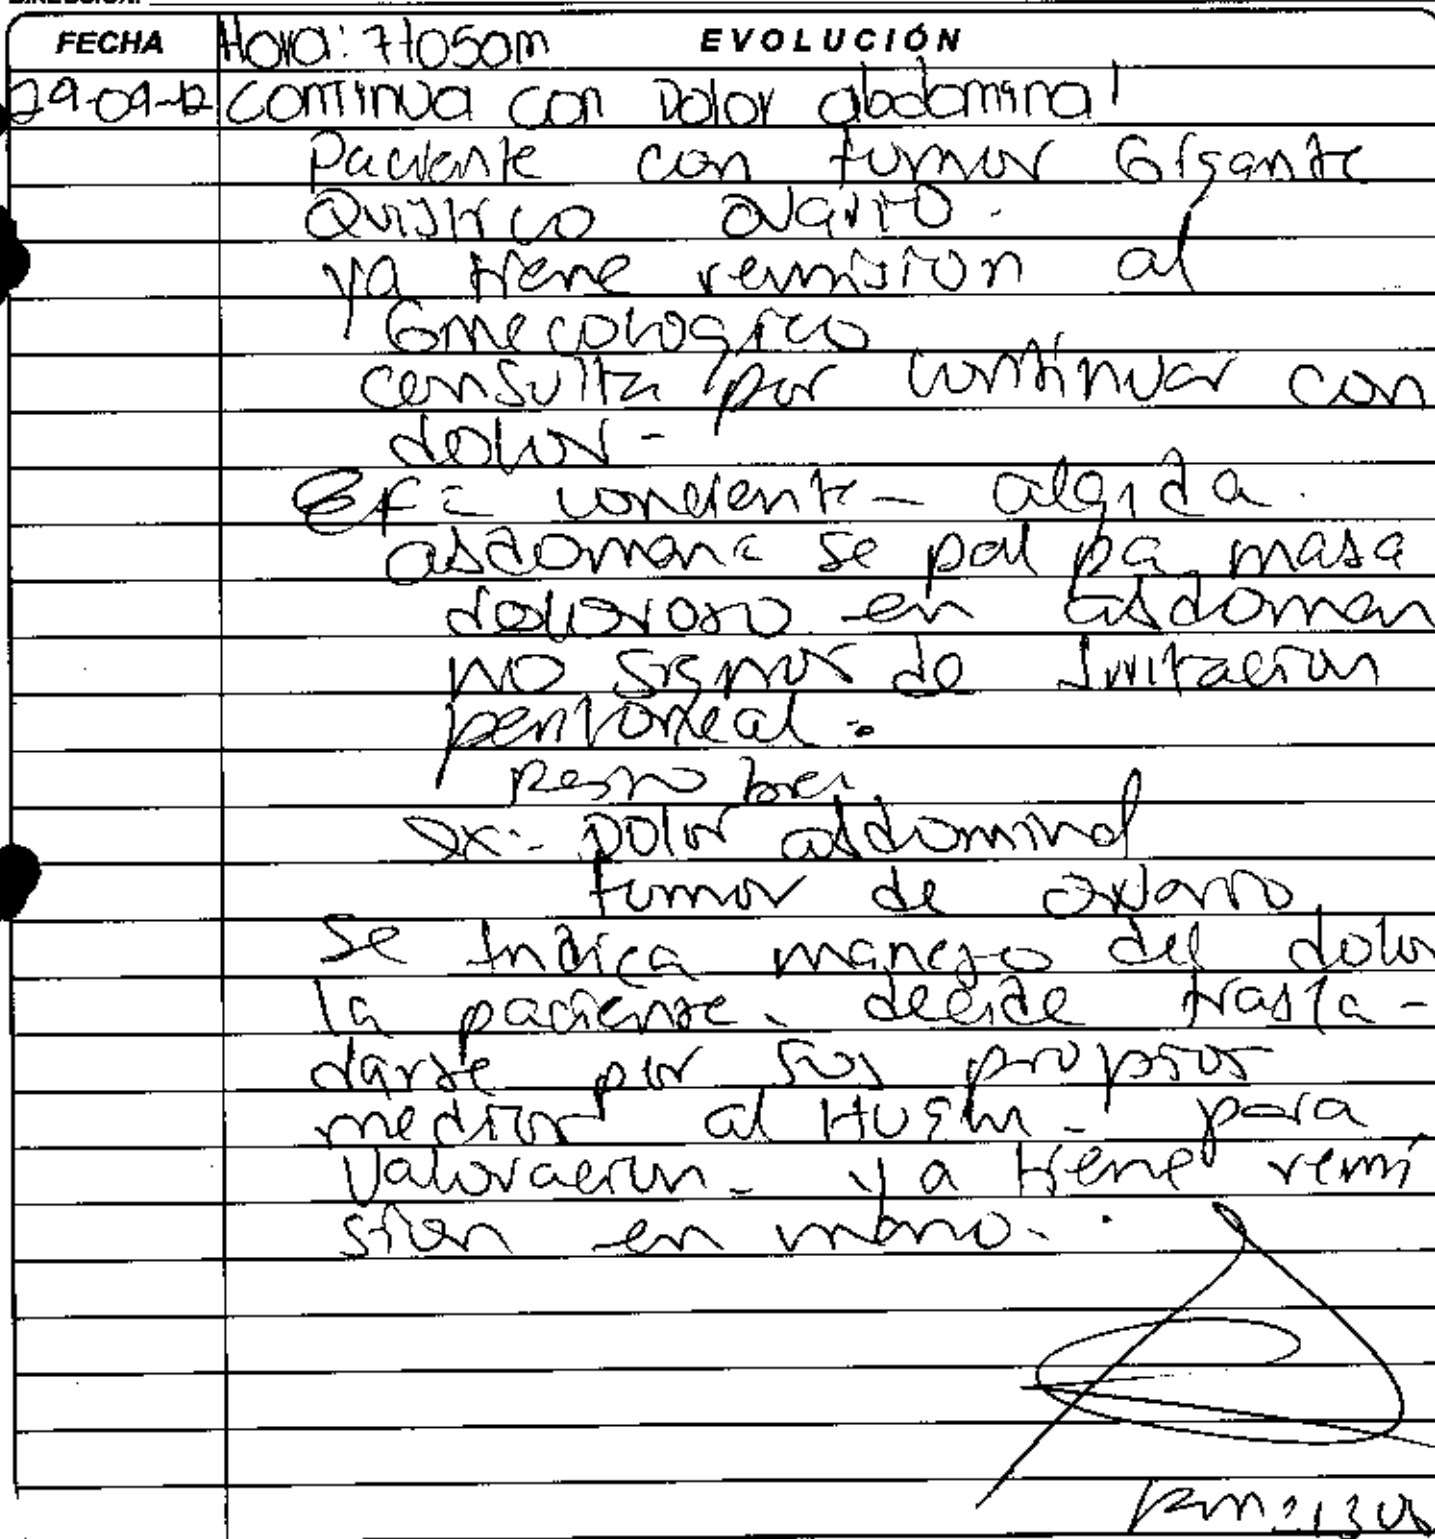 FECHA Hora: 7+05am EVOLUCIÓN
29-09-12 continua con Dolor abdominal
Paciente con tumor Gigante
Quistico ovario.
ya tiene remision al
Ginecologico
consulta por continuar con
dolor-
EF= conciente - algida.
abdomen: se palpa masa
doloroso en abdomen
no signos de Irritacion
peritoneal.
Resto bn
DX: Dolor abdominal
tumor de ovario
Se Indica manejo del dolor
la paciente. decide trasla-
darse por sus propios
medios al HUEM - para
Valoracion - ya tiene remi
sion en mano-.